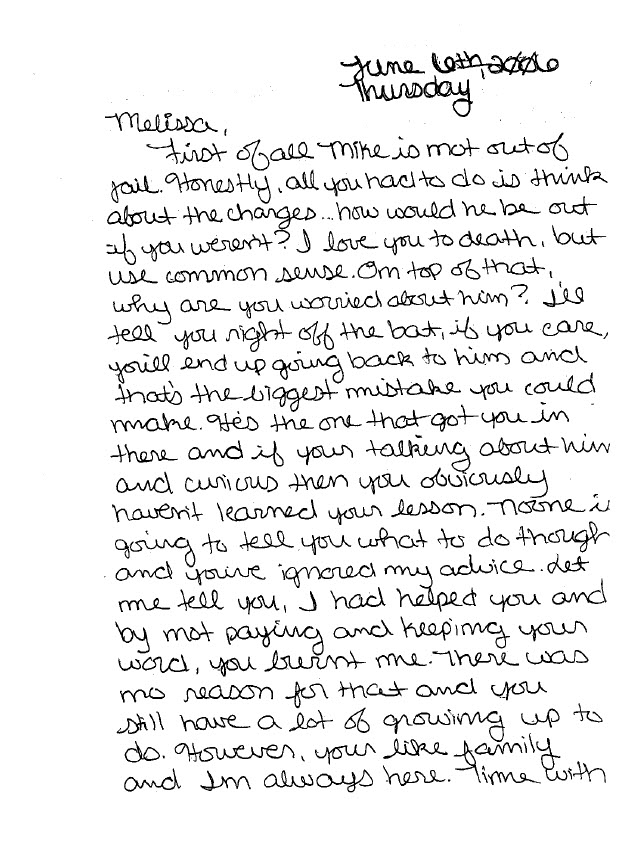 June 16th, 2006
Thursday
Melissa,
First of all Mike is not out of
jail. Honestly, all you had to do is think
about the charges... how would he be out
if you weren't? I love you to death, but
use common sense. On top of that,
why are you worried about him? I'll
tell you right off the bat, if you care,
you'll end up going back to him and
that's the biggest mistake you could
make. He's the one that got you in
there and if your talking about him
and curious then you obviously
haven't learned your lesson. Noone is
going to tell you what to do though
and you've ignored my advice. Let
me tell you, I had helped you and
by not paying and keeping your
word, you burnt me. There was
no reason for that and you
still have a lot of growing up to
do. However, your like family
and Im always here. Time with